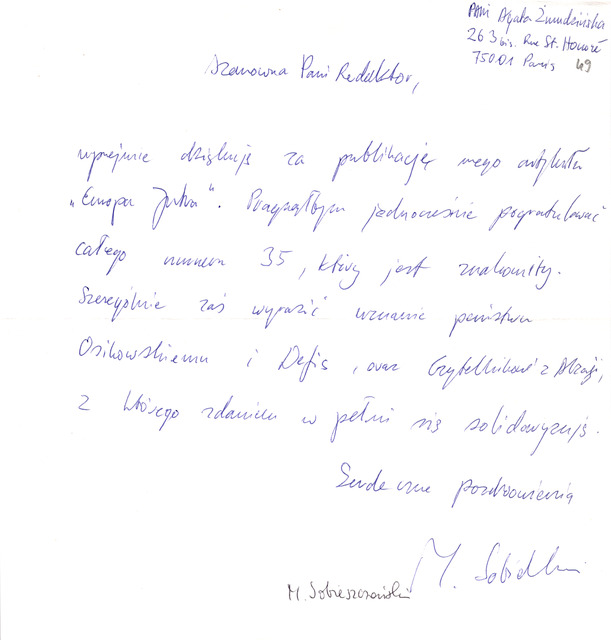 PANI Agata Żmudzińska
263 bis. Rue St. Honoré
75001 Paris 49
Szanowna Pani Redaktor,
uprzejmie dziękuję za publikację mego artykułu
„Europa Jutra". Pragnąłbym jednocześnie pogratulować
całego numeru 35, który jest znakomity.
Szczególnie zaś wyrazić uznanie państwu
Osikowskiemu i Defis, oraz Czytelnikowi z Alzacji,
z którego zdaniem w pełni się solidaryzuję.
Serdeczne pozdrowienia
M.
M. Sobieszczański